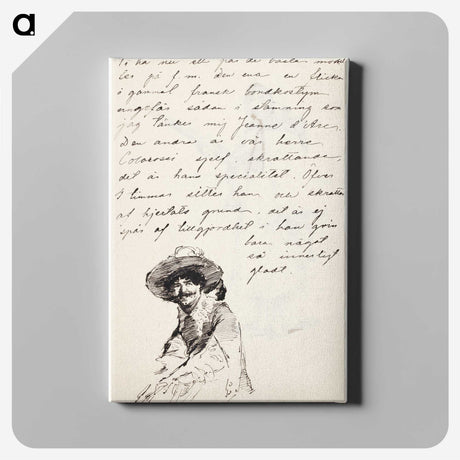 a.
ha nu ett par de bästa mod
ler på f.m. den ena en flicka
i gammal fransk bondkostym
ungefär sådan i stämning som
jag tänker mig Jeanne d'Arc.
Den andra är vår herre
Colarossi sjelf, skrattande,
det är hans specialitet. Öfver
2 timmar sitter han och skrattar
af hjertats grund, det är ej
spår af tillgjordhet i han grin
bara något
så innerligt
gladt.